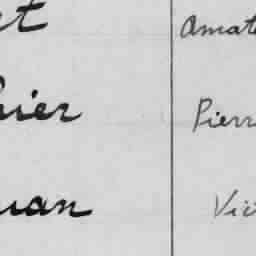 et Amat
hier Pierr
uan Vic